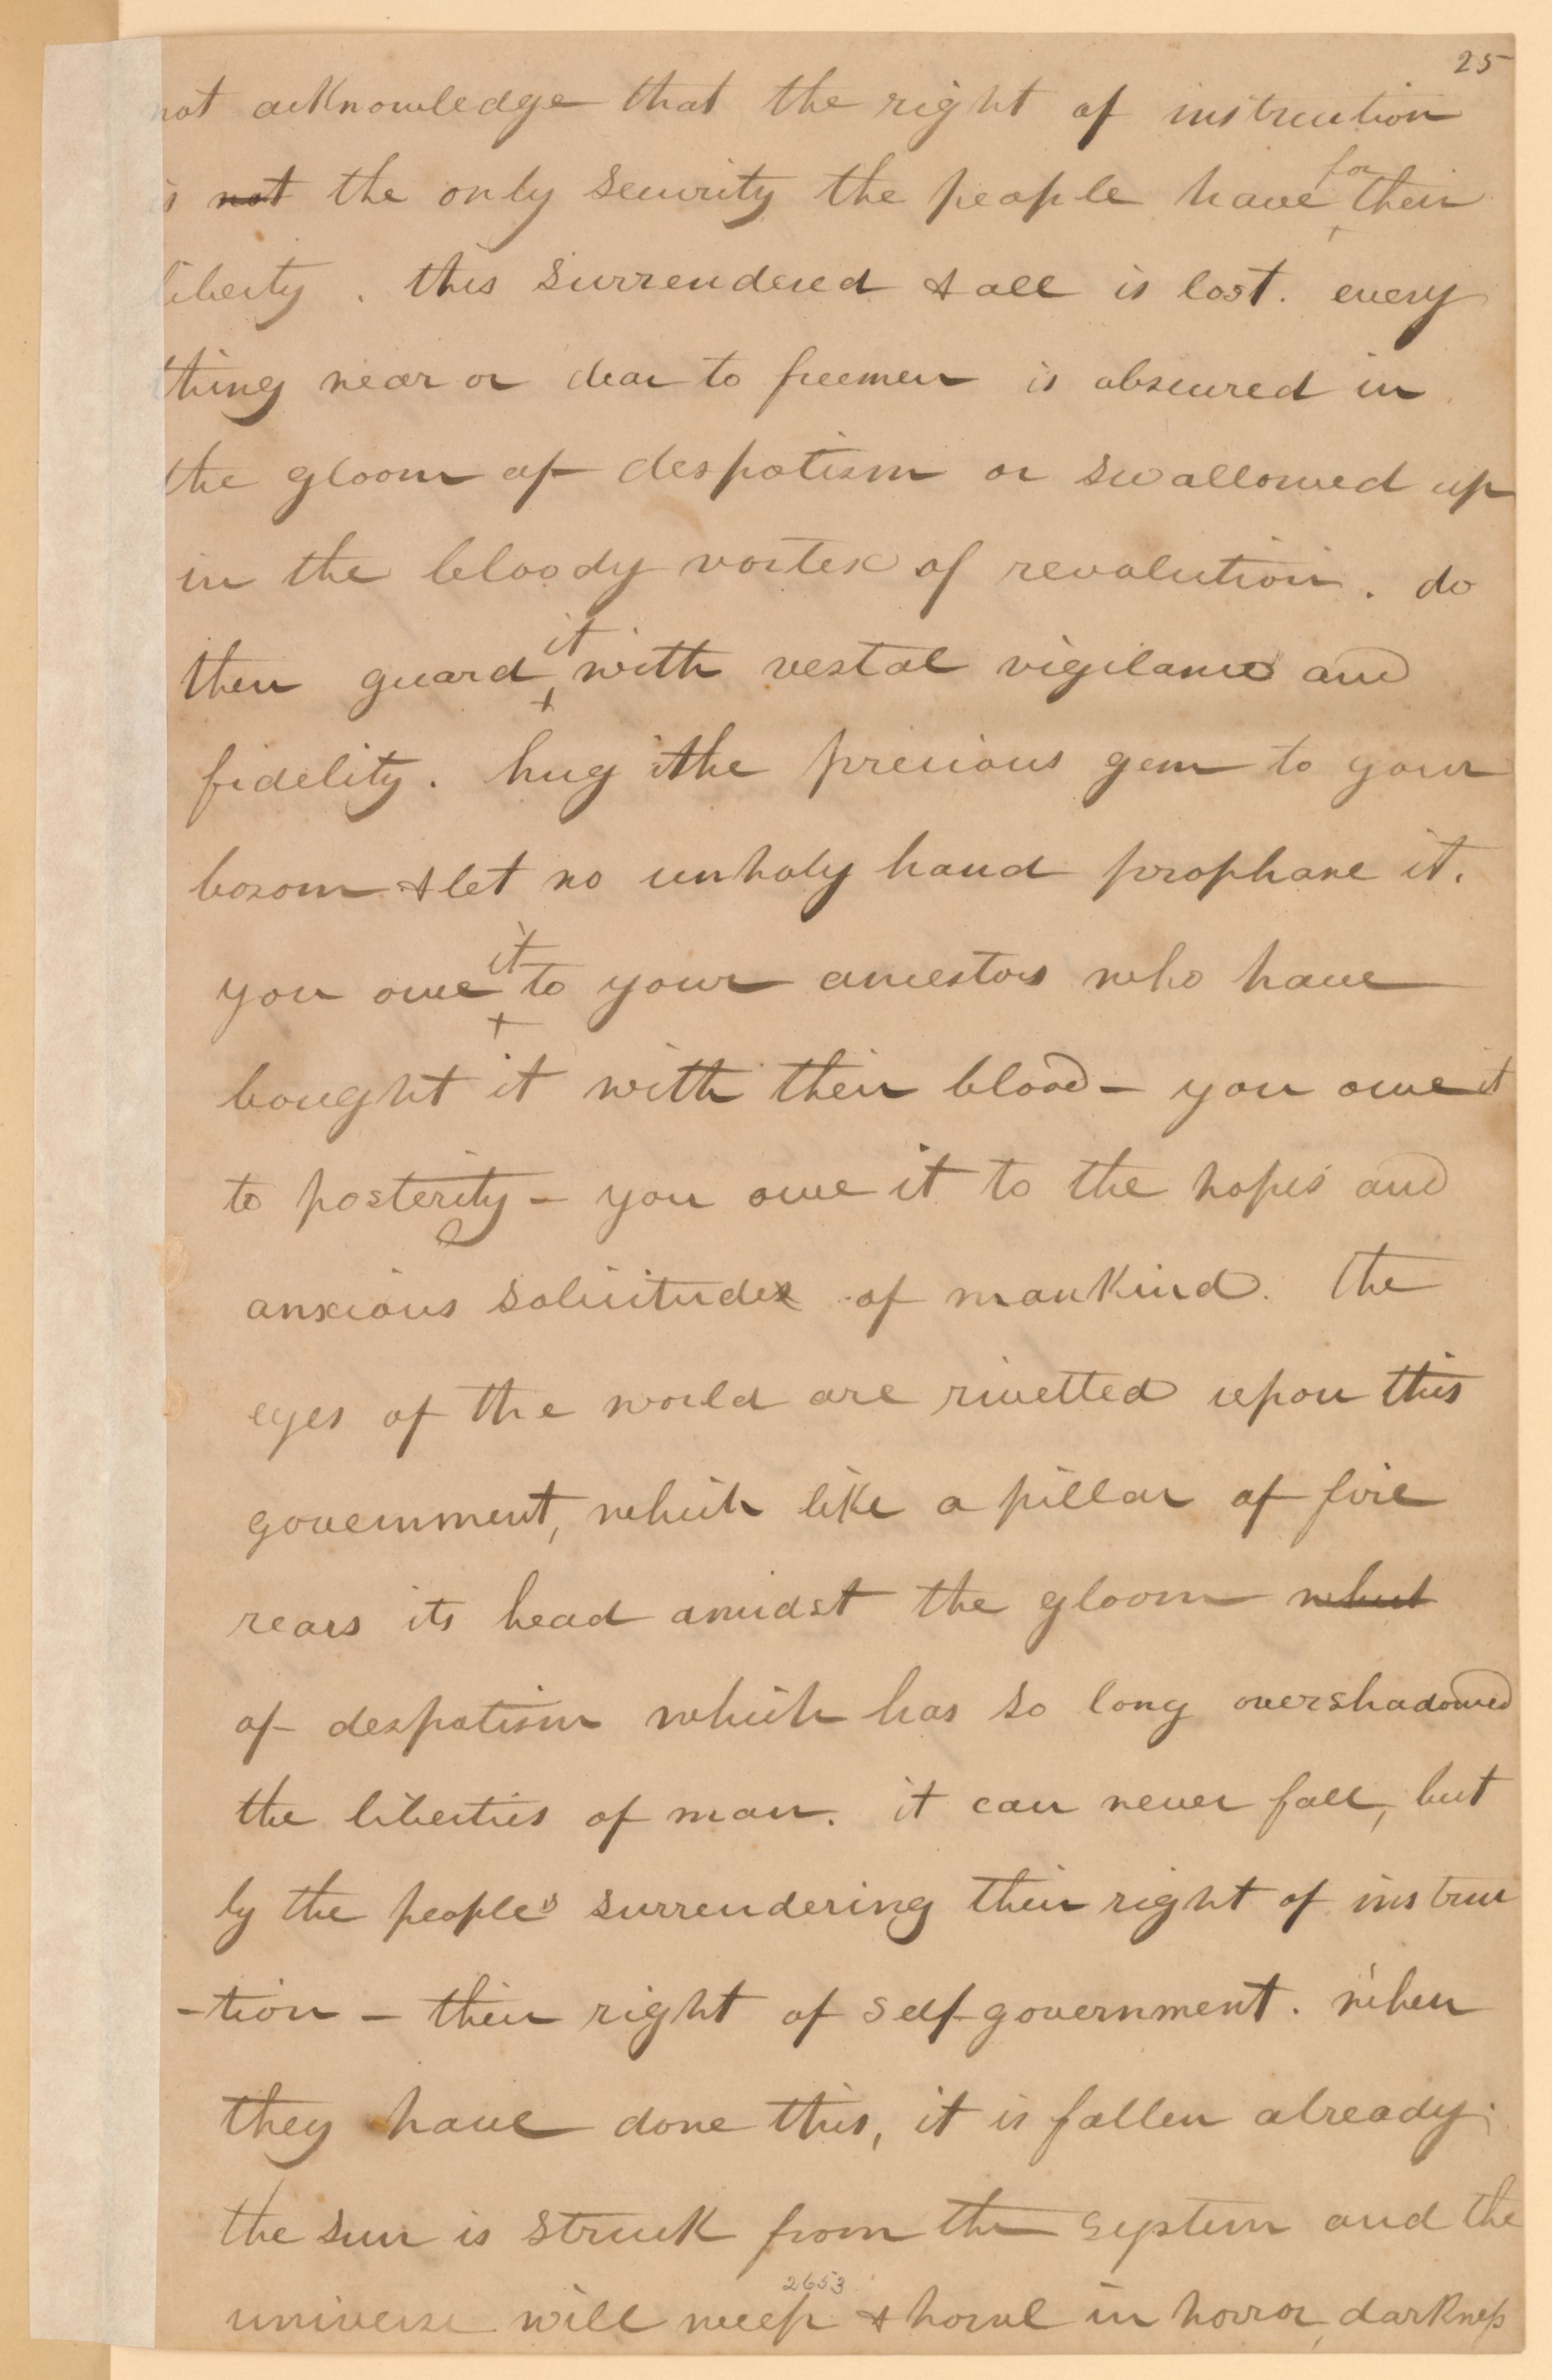 25
not acknowledge that the right of instruction
is not the only security the people have for their
liberty. this surrendered & all is lost. every
thing near or dear to freemen is obscured in
the gloom of despotism or swallowed up
in the bloody vortex of revolution. do
then guard it with vestal vigilance and
fidelity. hug the precious gem to your
bosom & let no unholy hand prophane it.
you owe it to your ancestors who have
bought it with their blood – you owe it
to posterity – you owe it to the hopes and
anxious solicitudes of mankind. the
eyes of the world are rivetted upon this
government, which like a pillar of fire
rears its head amidst the gloom
of despotism which has so long overshadowed
the liberties of man. it can never fall, but
by the people's surrendering their right of instruc
-tion – their right of self-government. when
they have done this, it is fallen already;
the sun is struck from the system and the
2653
universe will weep & howl in horror, darkness